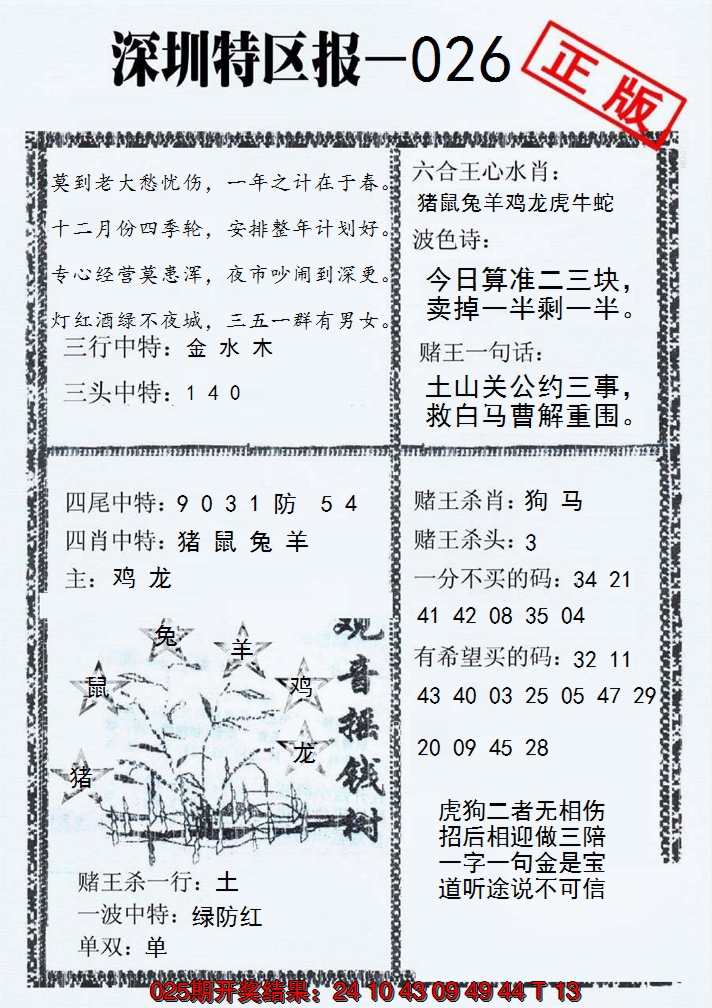 深圳特区报—026
正版
莫到老大愁忧伤，一年之计在于春。
十二月份四季轮，安排整年计划好。
专心经营莫患浑，夜市吵闹到深更。
灯红酒绿不夜城，三五一群有男女。
三行中特：金 水 木
三头中特：1 4 0
六合王心水肖：
猪鼠兔羊鸡龙虎牛蛇
波色诗：
今日算准二三块，
卖掉一半剩一半。
赌王一句话：
土山关公约三事，
救白马曹解重围。
四尾中特：9 0 3 1 防 5 4
四肖中特：猪 鼠 兔 羊
主：鸡 龙
兔
羊
鼠
鸡
龙
猪
观音摇钱树
赌王杀一行：土
一波中特：绿防红
单双：单
赌王杀肖：狗 马
赌王杀头：3
一分不买的码：34 21
41 42 08 35 04
有希望买的码：32 11
43 40 03 25 05 47 29
20 09 45 28
虎狗二者无相伤
招后相迎做三陪
一字一句金是宝
道听途说不可信
025期开奖结果：24 10 43 09 49 44 T 13